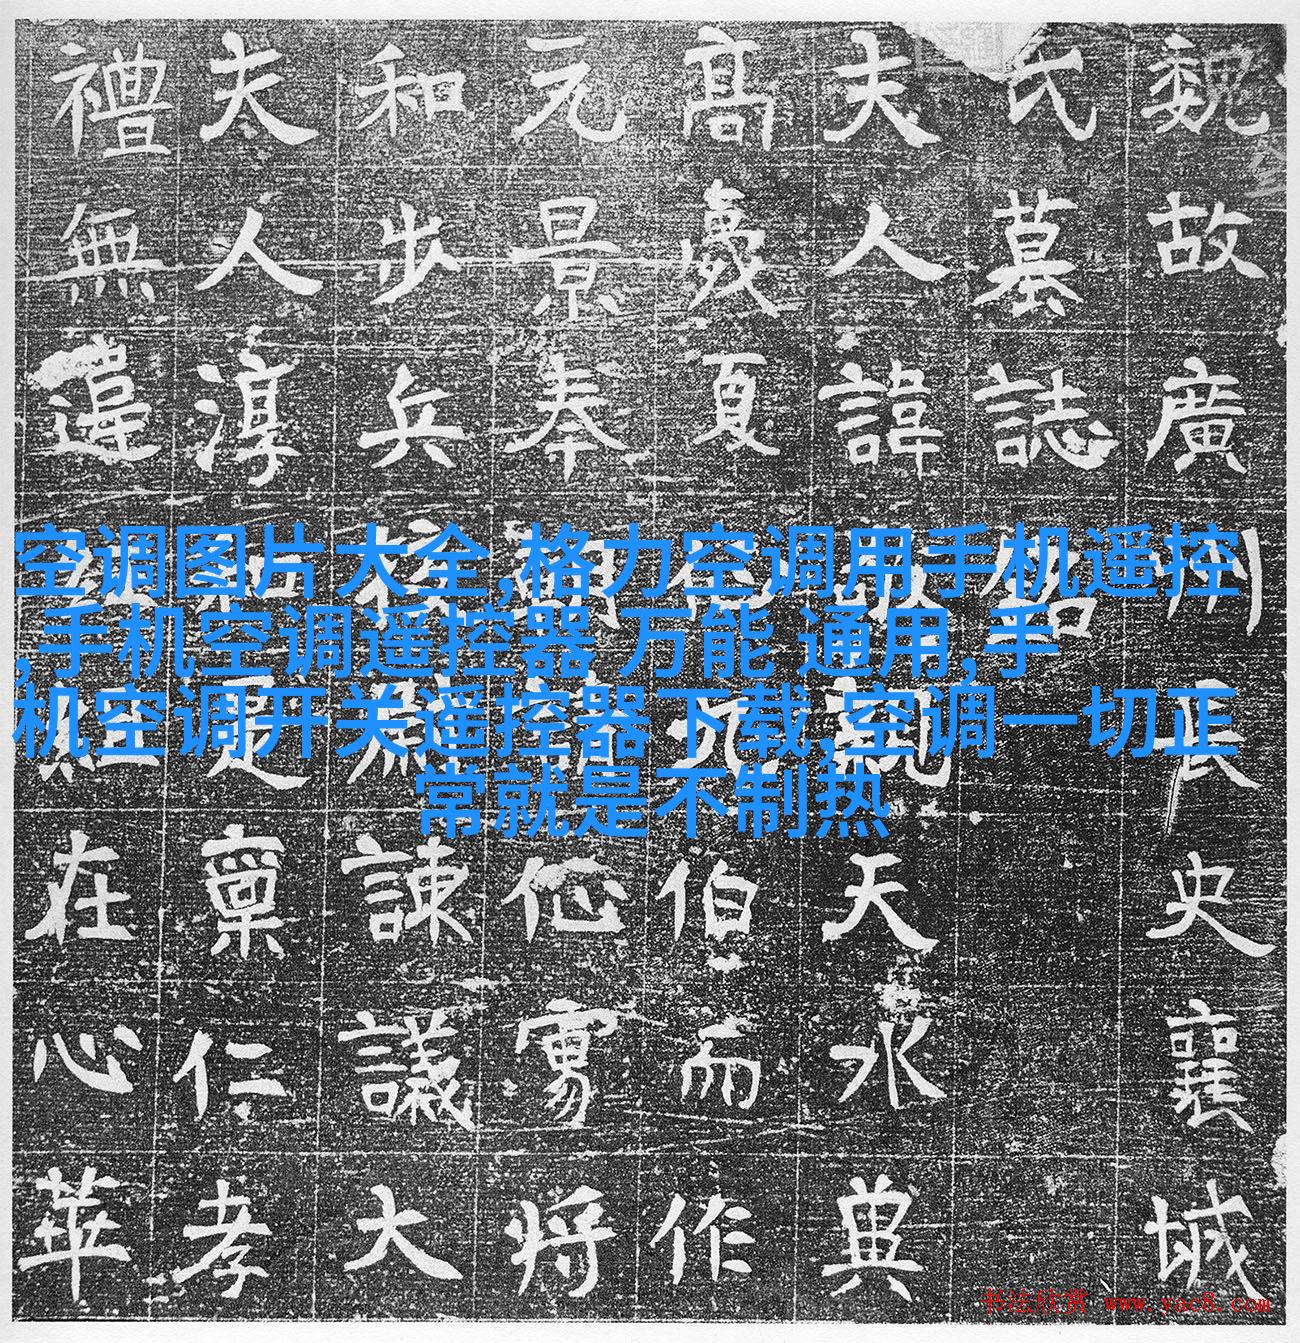 空调图片大全,格力空调用手机遥控
,手机空调遥控器 万能 通用,手
机空调开关遥控器下载,空调一切正
常就是不制热
魏故廣州長史襄城
氏墓誌銘
夫人諱 天水典
髙 夏 伯而作
元景奉朝請 將
和步兵校尉諫議大
夫人淳和是稟仁孝
禮無違 在心華
书法欣赏 www.yac8.com